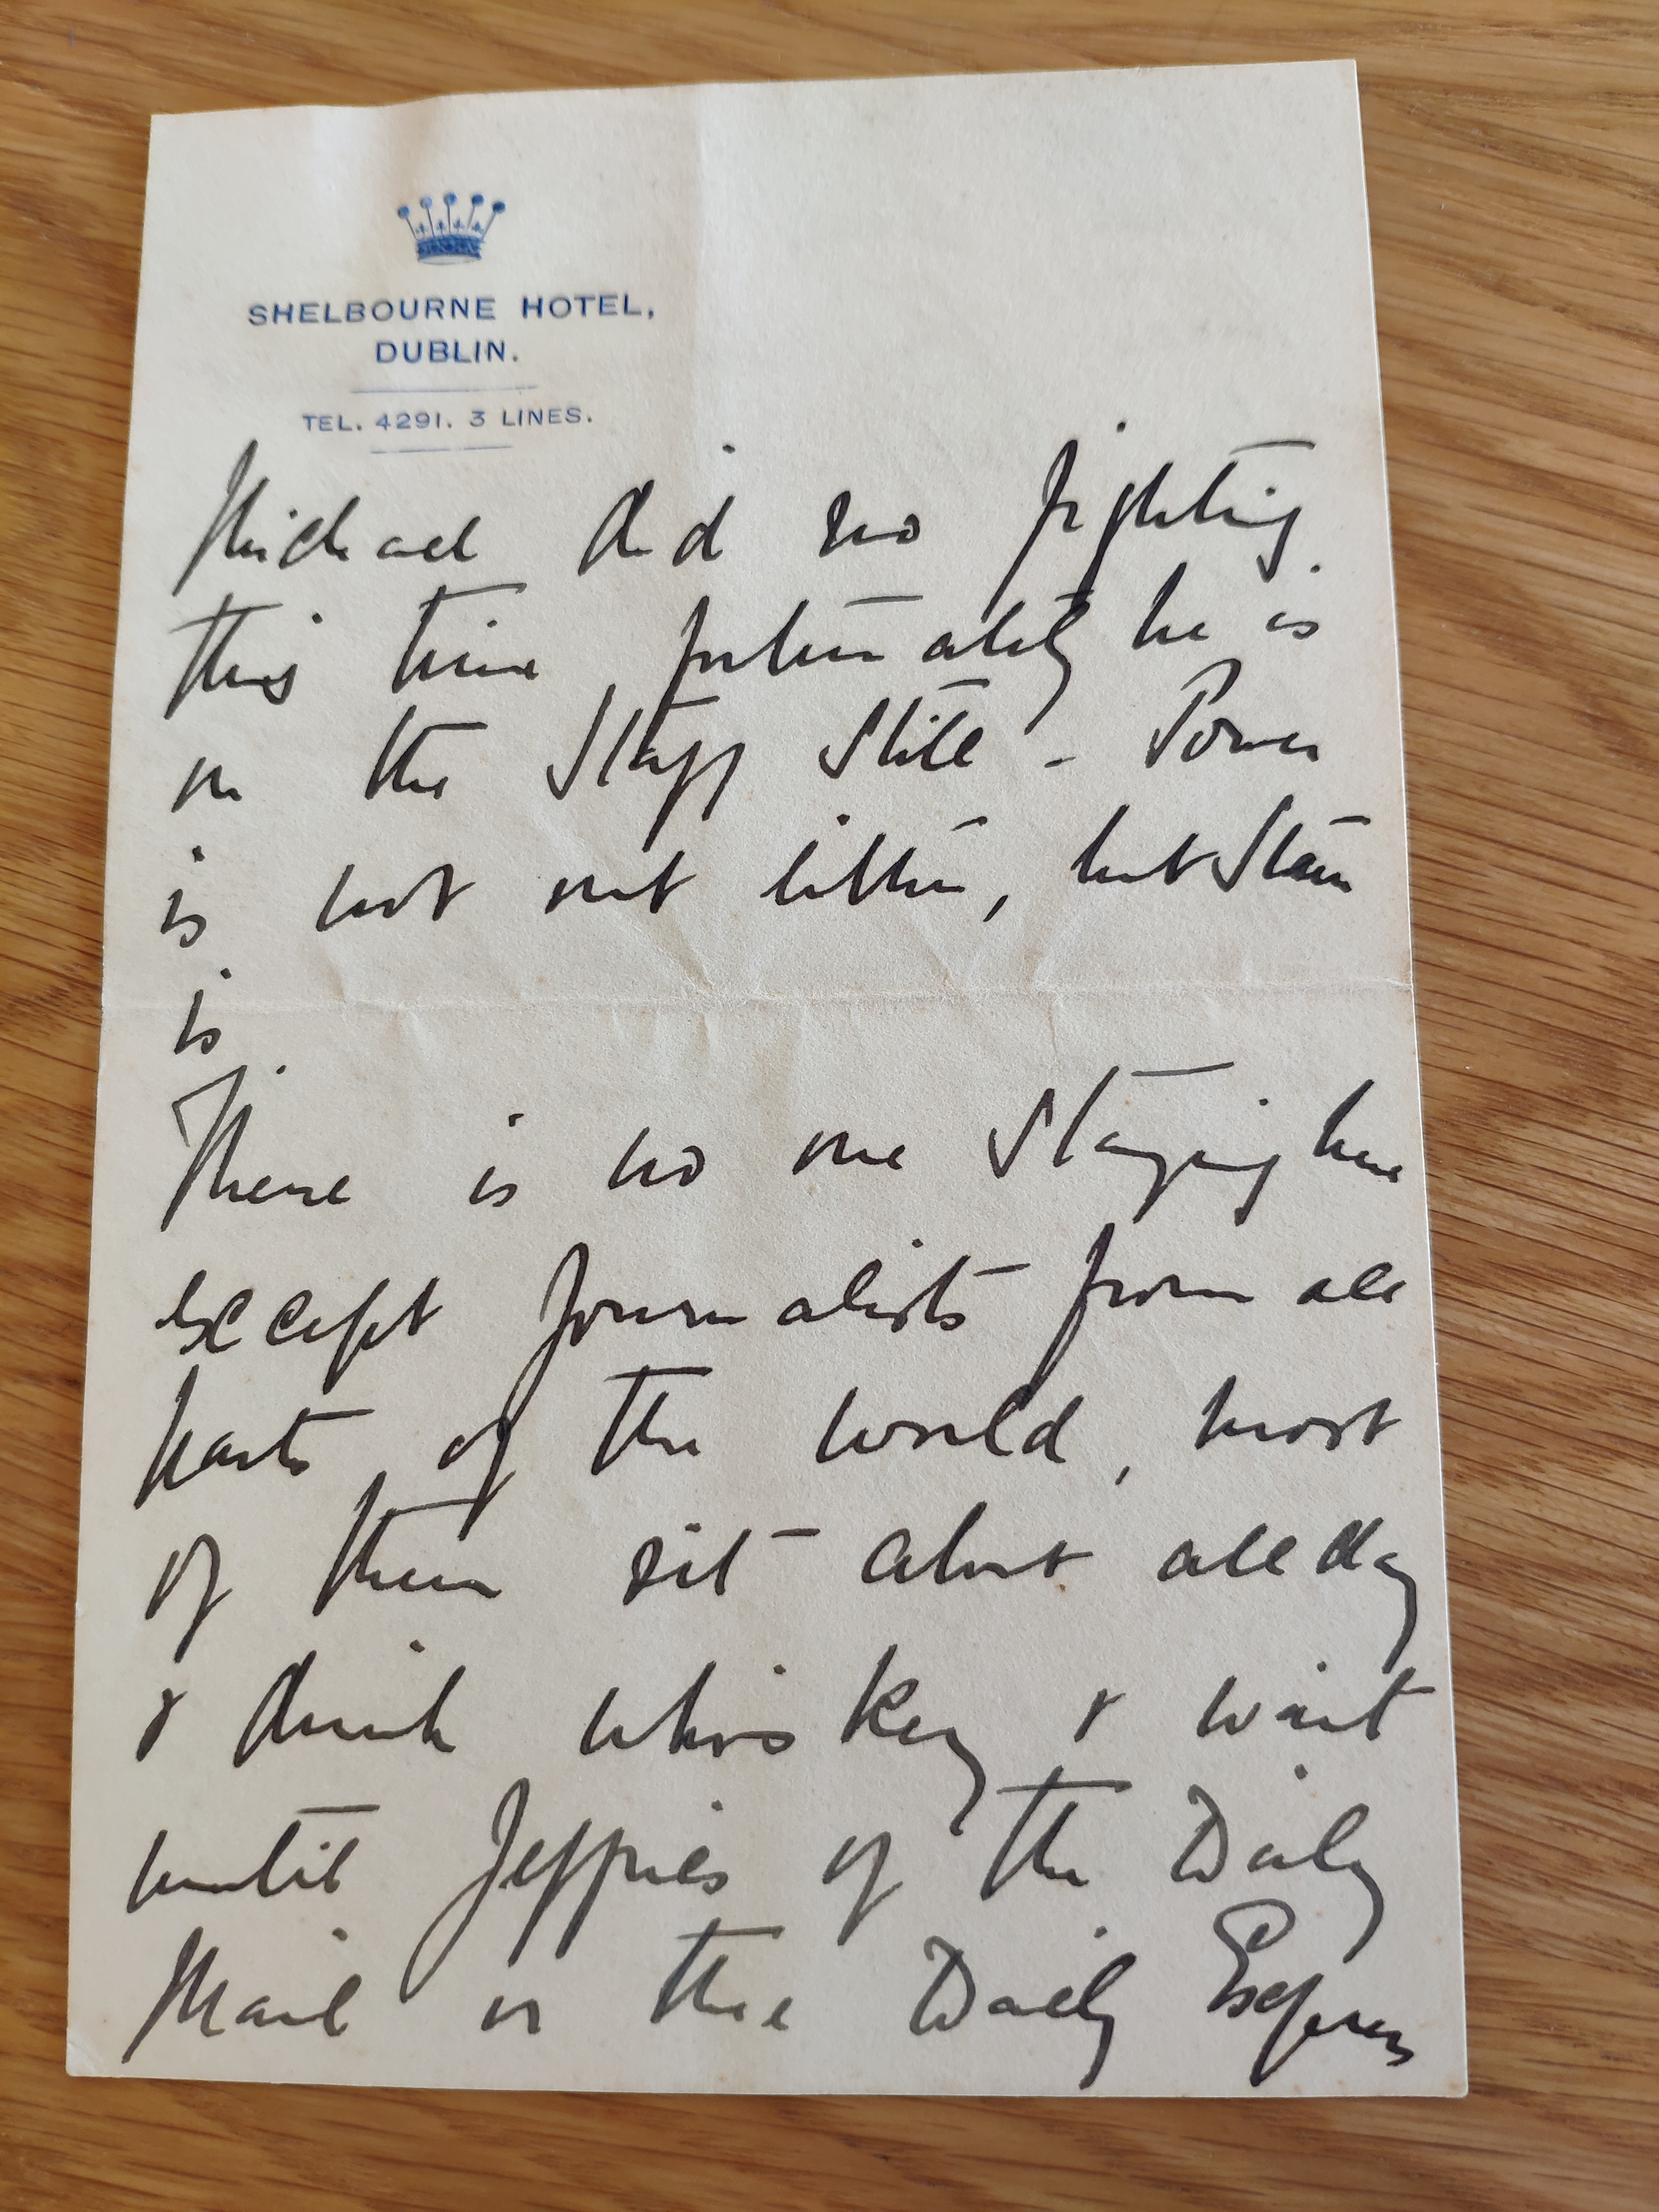 SHELBOURNE HOTEL,
DUBLIN.
TEL. 4291. 3 LINES.
Michael did no fighting
this time fortunately he is
on the Staff still - Power
is not out either, but Stan
is
There is no one staying here
except journalists from all
parts of the world, most
of them sit about all day
& drink whiskey & wait
until Jeffries of the Daily
Mail or the Daily Express